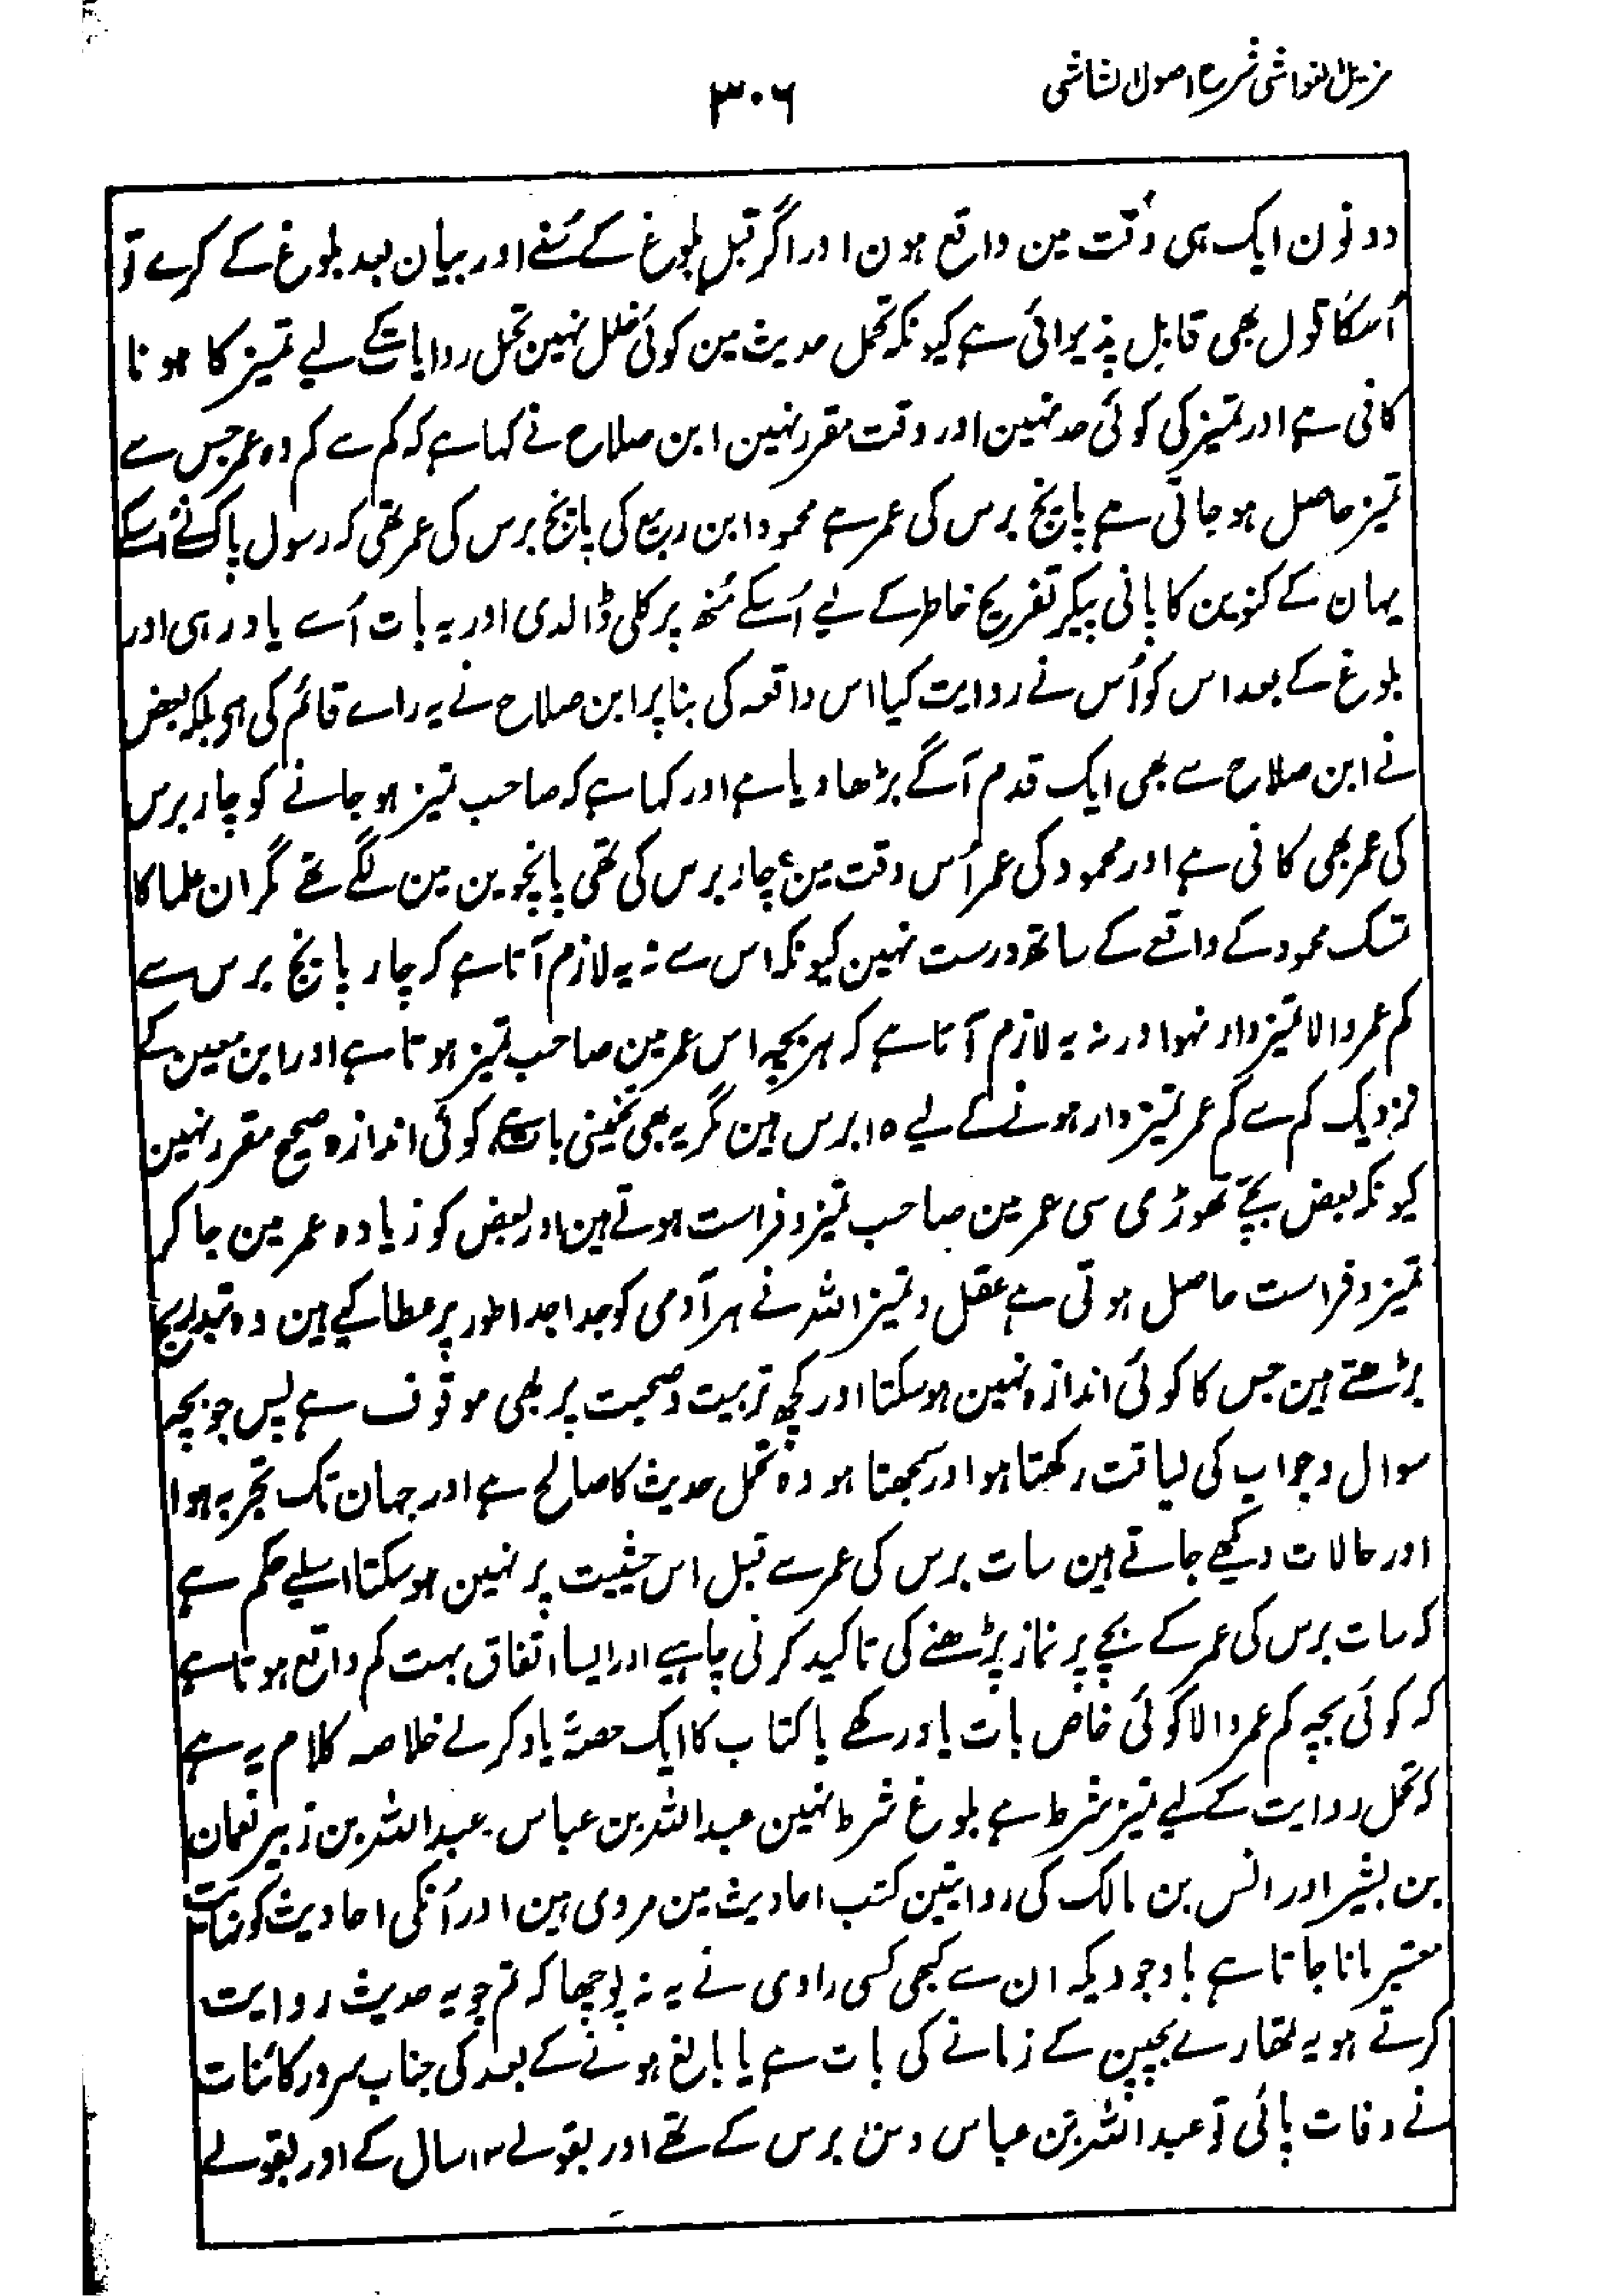 مزیل الغواشی شرح اصول الشاشی
۳۰۶
دونون ایک ہی وقت مین واقع ہون اور اگر قبل بلوغ کے سُنے اور بیان بعد بلوغ کے کرے تو
اُسکا قول بھی قابل پذیرائی ہے کیونکہ تحمل حدیث مین کوئی خلل نہین تحمل روایات کے لیے تمیز کا ہونا
کافی ہے اور تمیز کی کوئی حد نہین اور وقت مقرر نہین ابن صلاح نے کہا ہے کہ کم سے کم وہ عمر جس سے
تمیز حاصل ہو جاتی ہے پانچ برس کی عمر ہے محمود ابن ربیع کی پانچ برس کی عمر تھی کہ رسول پاک نے اسکے
یہان کے کنوین کا پانی پیکر تفریح خاطر کے لیے اُسکے مُنھ پر کلی ڈالدی اور یہ بات اُسے یاد رہی اور
بلوغ کے بعد اس کو اُس نے روایت کیا اس واقعہ کی بنا پر ابن صلاح نے یہ راے قائم کی ہی بلکہ بعض
نے ابن صلاح سے بھی ایک قدم آگے بڑھا دیا ہے اور کہا ہے کہ صاحب تمیز ہو جانے کو چار برس
کی عمر بھی کافی ہے اور محمود کی عمر اُس وقت مین چار برس کی تھی پانچوین مین لگے تھے مگر ان علما کا
تمسک محمود کے واقعے کے ساتھ درست نہین کیونکہ اس سے نہ یہ لازم آتا ہے کہ چار پانچ برس سے
کم عمر والا تمیز دار نہوا ور نہ یہ لازم آتا ہے کہ ہر بچہ اس عمر مین صاحب تمیز ہوتا ہے اور ابن معین کے
نزدیک کم سے کم عمر تمیز دار ہونے کے لیے ۱۵ برس ہین مگر یہ بھی تخمینی بات ہے کوئی اندازہ صحیح مقرر نہین
کیونکہ بعض بچّے تھوڑی سی عمر مین صاحب تمیز و فراست ہوتے ہین اور بعض کو زیادہ عمر مین جا کر
تمیز و فراست حاصل ہوتی ہے عقل و تمیز اللہ نے ہر آدمی کو جدا جدا طور پر عطا کیے ہین وہ بتدریج
بڑھتے ہین جس کا کوئی اندازہ نہین ہو سکتا اور کچھ تربیت و صحبت پر بھی موقوف ہے پس جو بچہ
سوال و جواب کی لیاقت رکھتا ہو اور سمجھتا ہو وہ تحمل حدیث کا صالح ہے اور جہان تک تجربہ ہوا
اور حالات دیکھے جاتے ہین سات برس کی عمر سے قبل اس حیثیت پر نہین ہو سکتا اسلیے حکم ہے
کہ سات برس کی عمر کے بچے پر نماز پڑھنے کی تاکید کرنی چاہیے اور ایسا اتفاق بہت کم واقع ہوتا ہے
کہ کوئی بچہ کم عمر والا کوئی خاص بات یاد رکھے یا کتاب کا ایک حصہ یاد کرلے خلاصہ کلام یہ ہے
کہ تحمل روایت کے لیے تمیز شرط ہے بلوغ شرط نہین عبد اللہ بن عباس۔ عبد اللہ بن زبیر نعمان
بن بشیر اور انس بن مالک کی روایتین کتب احادیث مین مروی ہین اور اُنکی احادیث کو نہایت
معتبر مانا جاتا ہے باوجودیکہ ان سے کبھی کسی راوی نے یہ نہ پوچھا کہ تم جو یہ حدیث روایت
کرتے ہو یہ تمھارے بچپن کے زمانے کی بات ہے یا بالغ ہونے کے بعد کی جناب سرور کائنات
نے وفات پائی تو عبد اللہ بن عباس دس برس کے تھے اور بقولے ۱۳ سال کے اور بقولے